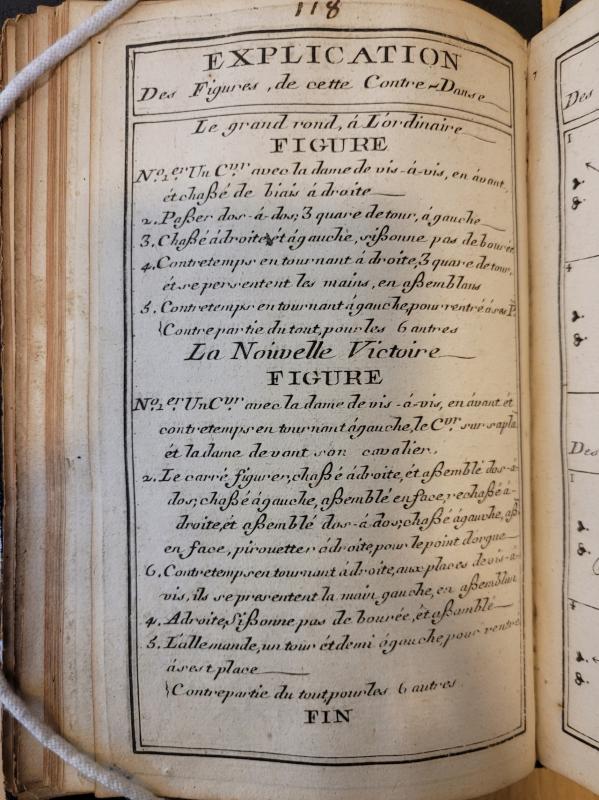 118
EXPLICATION
Des Figures, de cette Contre-Danse
Le grand rond, á L'ordinaire
FIGURE
No. 1.er Un C.vr avec la dame de vis-á-vis, en ávant,
ét chaßé de biais á droite
2. Paßer dos-á-dos; 3 quare de tour, á gauche
3. Chaßé á droite, ét á gauche, sißonne pas de bourée
4. Contretemps en tournant á droite, 3 quare de tour,
ét se persentent les mains, en aßemblans
5. Contretemps en tournant á gauche, pour rentré á ses P.
Contre partie du tout, pour les 6 autres
La Nouvelle Victoire
FIGURE
No. 1.er Un C.vr avec la dame de vis-á-vis, en ávant ét
contretemps en tournant ágauche, le C.vr sur sa pla
ét la dame de vant son cavalier,
2. Le carré figurer, chaßé ádroite, ét aßemblé dos-á-
dos; chaßé ágauche, aßemblé en face, rechaßé á-
droite, ét aßemblé dos-á-dos; chaßé ágauche, aß
en face, pirouetter ádroite, pour le point d'orgue
6. Contretemps en tournant ádroite, aux places de vis-á-
vis, ils se presentent la main gauche, en aßemblan
4. A droite, Sißonne pas de bourée, ét aßamblé
5. L'allemande, un tour ét demi ágauche, pour rentré
á ses t place
Contrepartie du tout, pour les 6 autres
FIN
1
4
Des
1
4